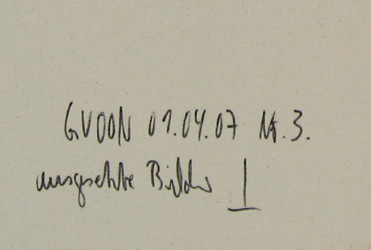 GVOON 01.04.07 Nr. 3.
ausgesetzte Bilder I